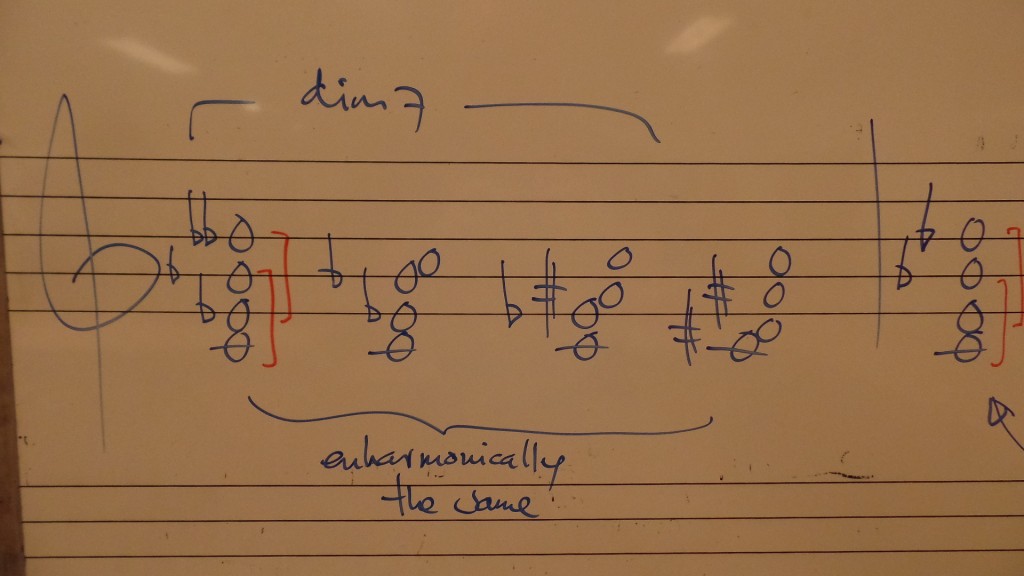 dim 7
enharmonically
the same